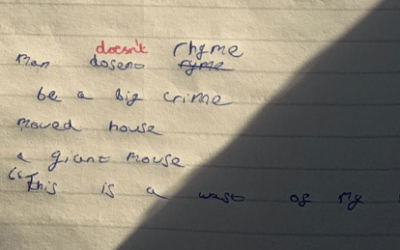 doesn't rhyme
Plan dosent ryme
be a big crime
moved house
a giant mouse
"This is a wast of my